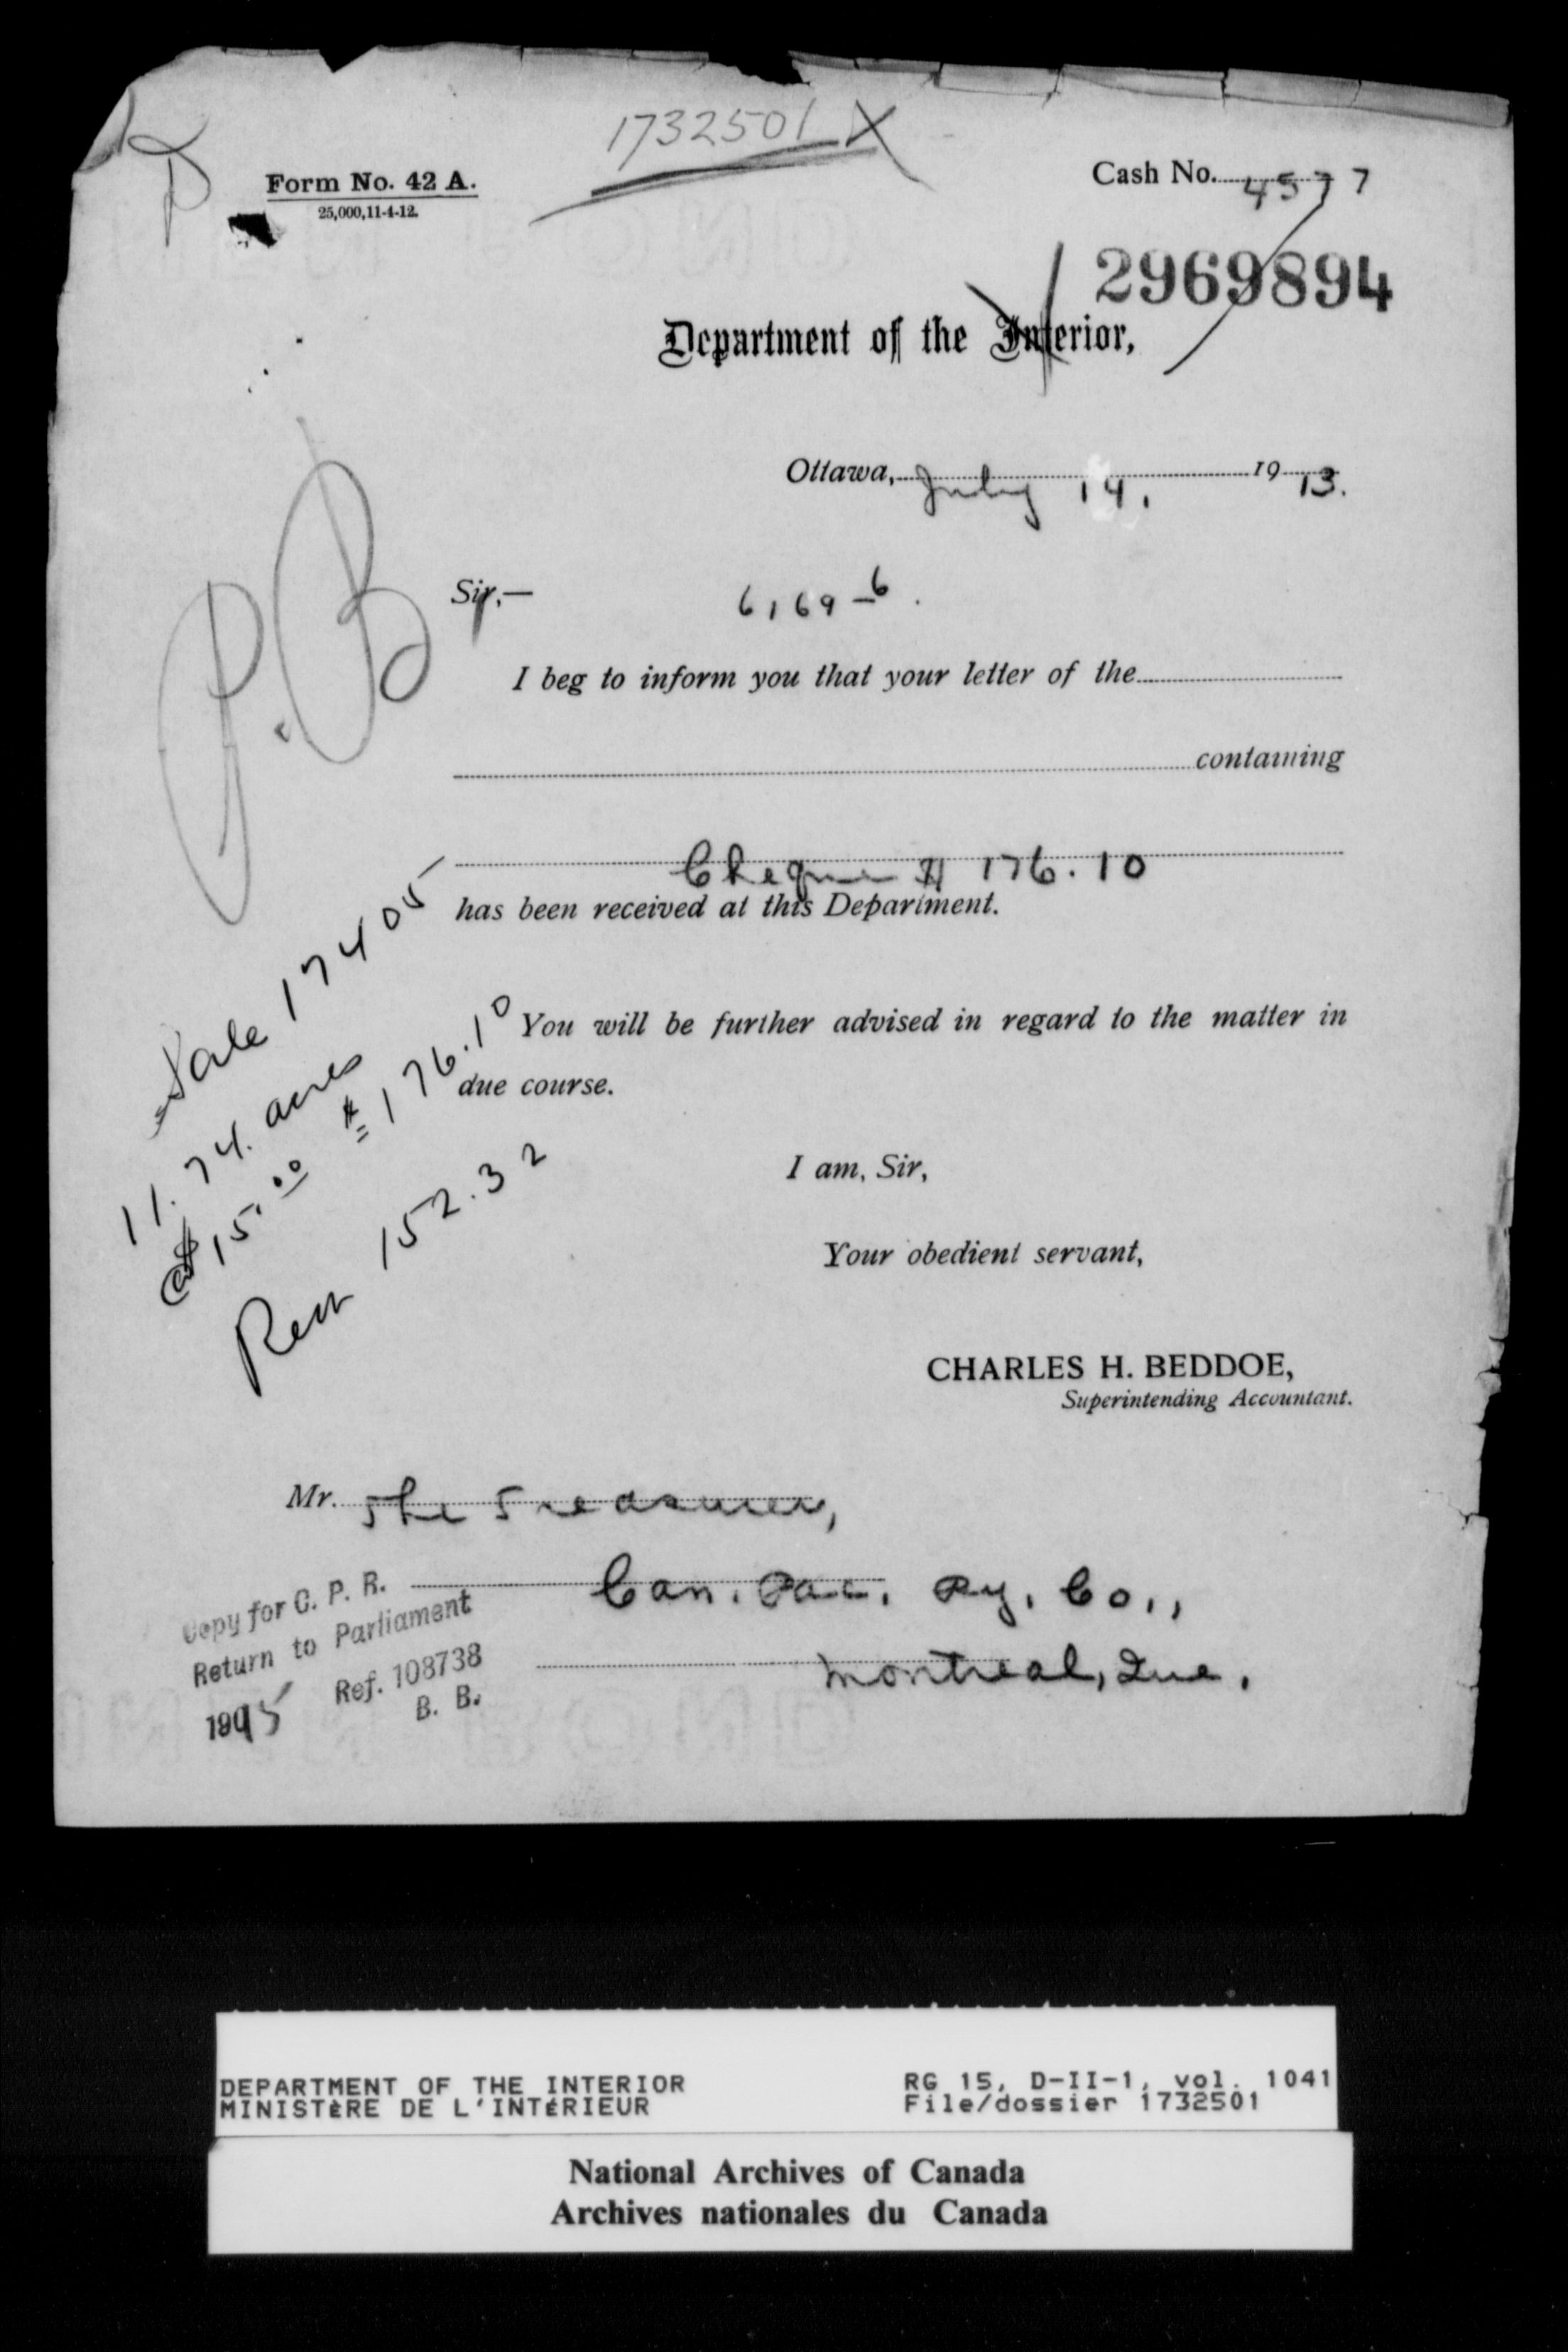 1732501 X
Form No. 42 A.
25,000,11-4-12.
Cash No. 4577
2969894
Department of the Interior,
Ottawa, July 14, 1913.
Sir,—
6169-6.
I beg to inform you that your letter of the
containing
Cheque $ 176.10
has been received at this Department.
You will be further advised in regard to the matter in
due course.
I am, Sir,
Your obedient servant,
CHARLES H. BEDDOE,
Superintending Accountant.
P.B
Sale 17405
11.74 acres
@ $15.00 $176.10
Rem 152.32
Mr. The Treasurer,
Can. Pac. Ry. Co.,
Montreal, Que.
Copy for C. P. R.
Return to Parliament
Ref. 108738
B. B.
DEPARTMENT OF THE INTERIOR
MINISTÈRE DE L'INTÉRIEUR
RG 15, D-II-1, vol. 1041
File/dossier 1732501
National Archives of Canada
Archives nationales du Canada